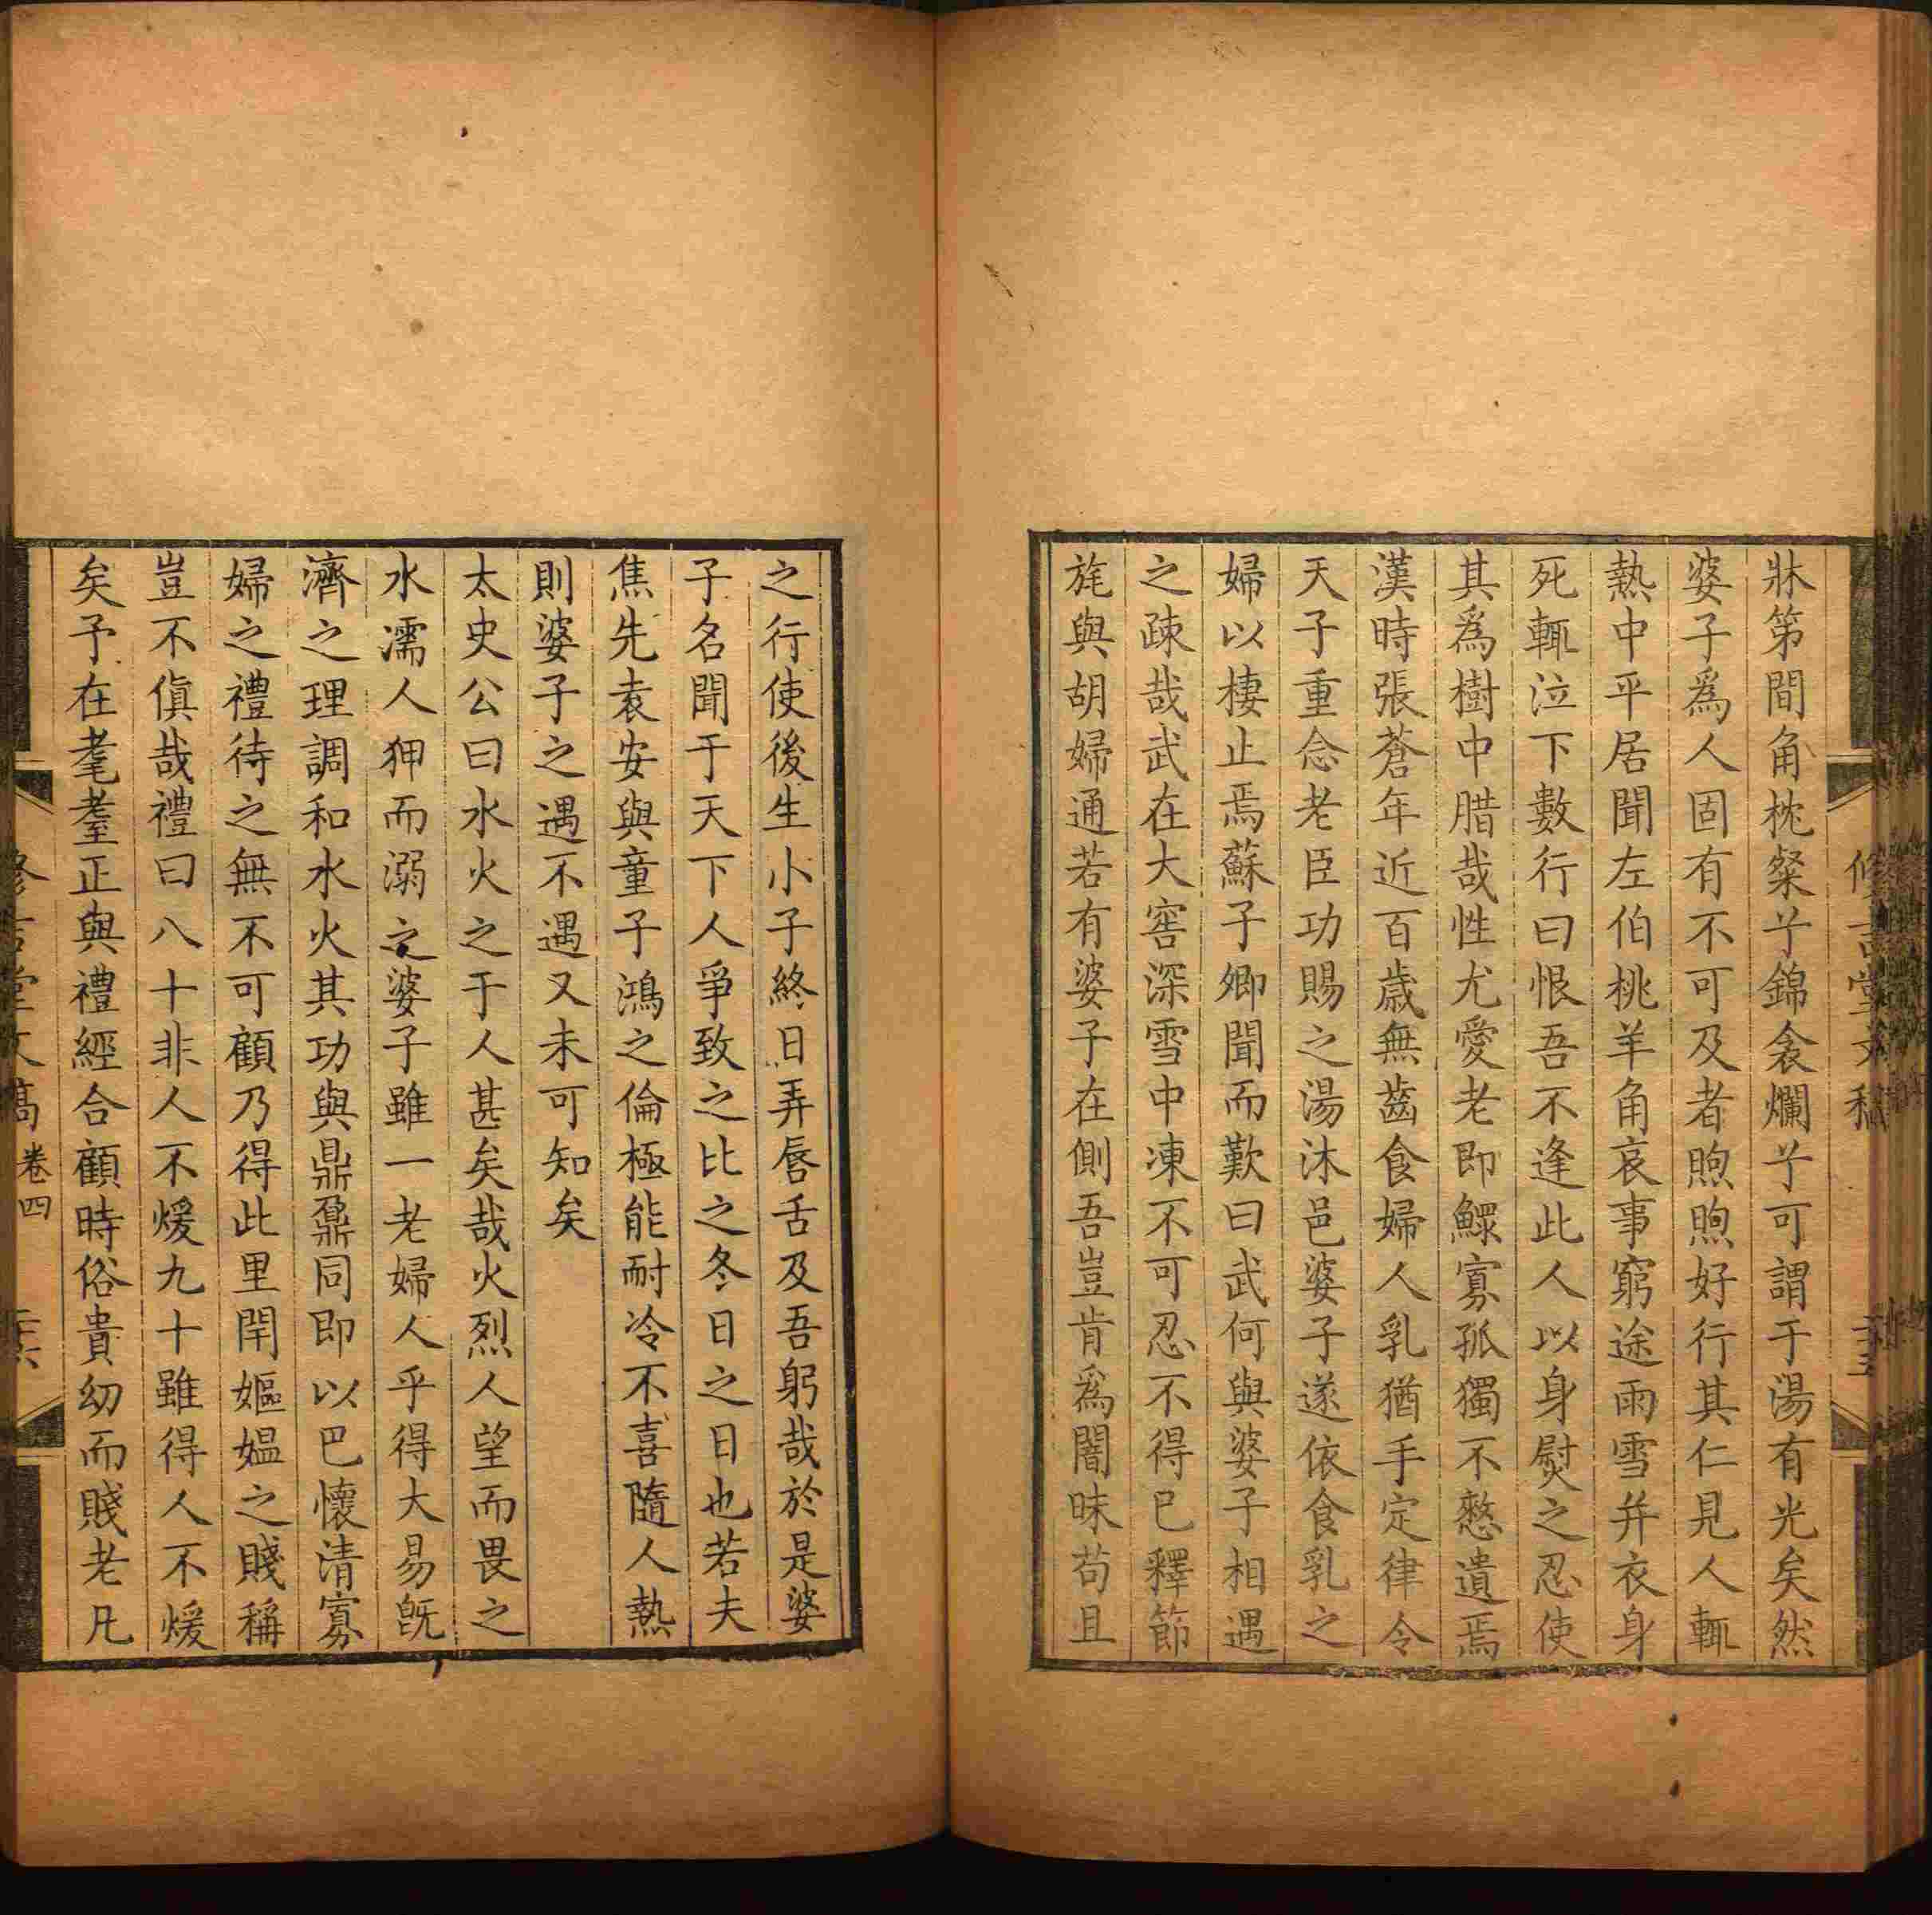 牀第間角枕粲兮錦衾爛兮可謂于湯有光矣然
婆子爲人固有不可及者煦煦好行其仁見人輒
熱中平居聞左伯桃羊角哀事窮途雨雪并衣身
死輒泣下數行曰恨吾不逢此人以身熨之忍使
其爲樹中腊哉性尤愛老即鰥寡孤獨不憖遺焉
漢時張蒼年近百歲無齒食婦人乳猶手定律令
天子重念老臣功賜之湯沐邑婆子遂依食乳之
婦以棲止焉蘇子卿聞而歎曰武何與婆子相遇
之疎哉武在大窖深雪中凍不可忍不得已釋節
旄與胡婦通若有婆子在側吾豈肯爲闇昧苟且
之行使後生小子終日弄唇舌及吾躬哉於是婆
子名聞于天下人爭致之比之冬日之日也若夫
焦先袁安與童子鴻之倫極能耐冷不喜隨人熱
則婆子之遇不遇又未可知矣
太史公曰水火之于人甚矣哉火烈人望而畏之
水濡人狎而溺之婆子雖一老婦人乎得大易旣
濟之理調和水火其功與鼎鼐同即以巴懷清寡
婦之禮待之無不可顧乃得此里閈嫗媼之賤稱
豈不傎哉禮曰八十非人不煖九十雖得人不煖
矣予在耄耋正與禮經合顧時俗貴幼而賤老凡
卷四